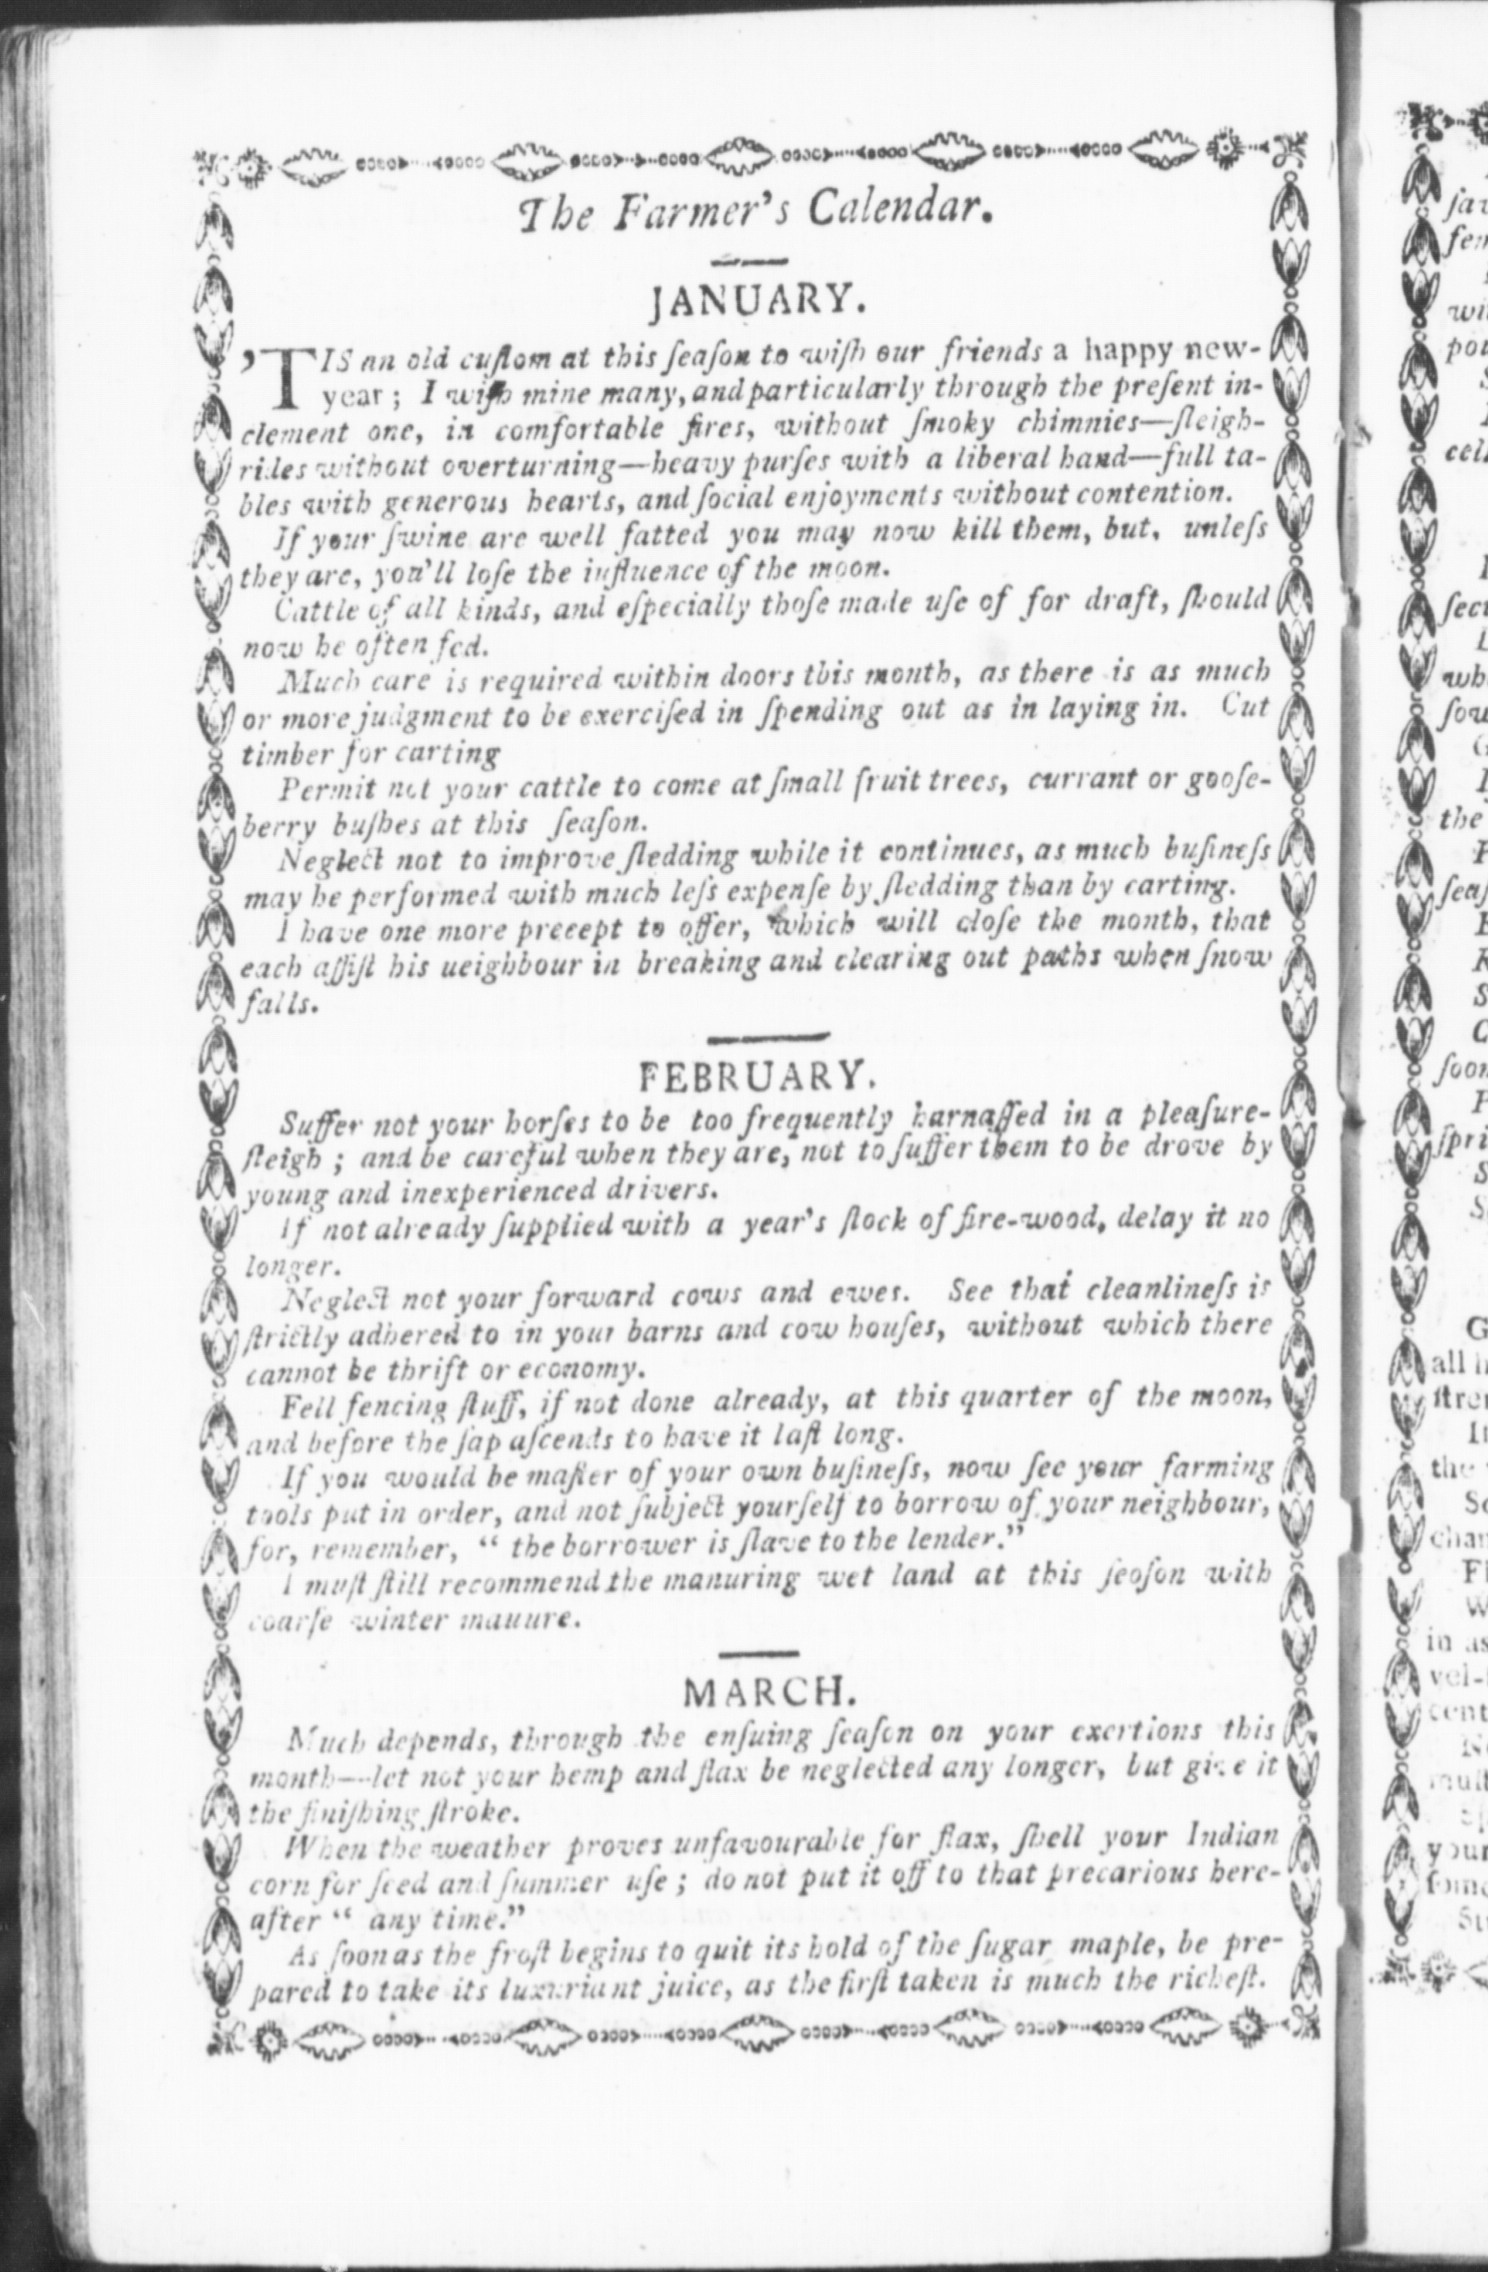 The Farmer's Calendar.
JANUARY.
'TIS an old cuſtom at this ſeaſon to wiſh our friends a happy new-
year; I wiſh mine many, and particularly through the preſent in-
clement one, in comfortable fires, without ſmoky chimnies—ſleigh-
rides without overturning—heavy purſes with a liberal hand—full ta-
bles with generous hearts, and ſocial enjoyments without contention.
If your ſwine are well fatted you may now kill them, but, unleſs
they are, you'll loſe the influence of the moon.
Cattle of all kinds, and eſpecially thoſe made uſe of for draft, ſhould
now be often fed.
Much care is required within doors this month, as there is as much
or more judgment to be exerciſed in ſpending out as in laying in. Cut
timber for carting
Permit not your cattle to come at ſmall fruit trees, currant or gooſe-
berry buſhes at this ſeaſon.
Neglect not to improve ſledding while it continues, as much buſineſs
may be performed with much leſs expenſe by ſledding than by carting.
I have one more precept to offer, which will cloſe the month, that
each aſſiſt his ueighbour in breaking and clearing out paths when ſnow
falls.
FEBRUARY.
Suffer not your horſes to be too frequently harnaſſed in a pleaſure-
ſleigh; and be careful when they are, not to ſuffer them to be drove by
young and inexperienced drivers.
If not already ſupplied with a year's ſtock of fire-wood, delay it no
longer.
Neglect not your forward cows and ewes. See that cleanlineſs is
ſtrictly adhered to in your barns and cow houſes, without which there
cannot be thrift or economy.
Fell fencing ſtuff, if not done already, at this quarter of the moon,
and before the ſap aſcends to have it laſt long.
If you would be maſter of your own buſineſs, now ſee your farming
tools put in order, and not ſubject yourſelf to borrow of your neighbour,
for, remember, "the borrower is ſlave to the lender."
I muſt ſtill recommend the manuring wet land at this ſeoſon with
coarſe winter mauure.
MARCH.
Much depends, through the enſuing ſeaſon on your exertions this
month—let not your hemp and flax be neglected any longer, but give it
the finiſhing ſtroke.
When the weather proves unfavourable for flax, ſhell your Indian
corn for ſeed and ſummer uſe; do not put it off to that precarious here-
after "any time."
As ſoon as the froſt begins to quit its hold of the ſugar maple, be pre-
pared to take its luxuriant juice, as the firſt taken is much the richeſt.